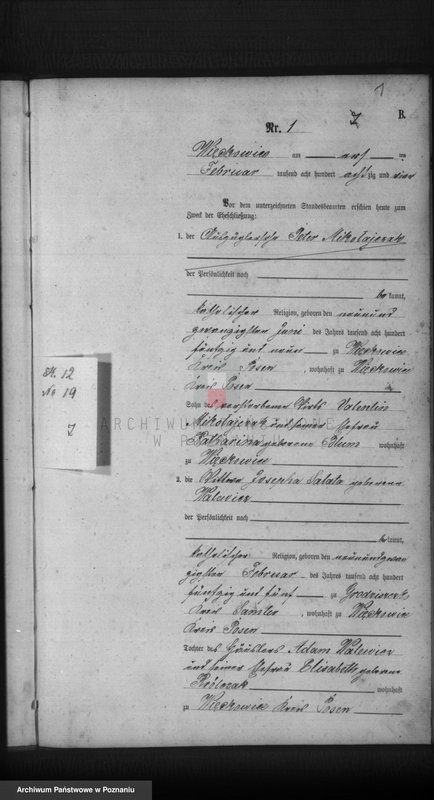 1
7 B.
Nr. 1
Więckowice am acht ten
Februar tausend acht hundert achtzig und vier
Vor dem unterzeichneten Standesbeamten erschien heute zum
Zweck der Eheschließung:
1. der Peter Mikolajczak
der Persönlichkeit nach
kannt,
katholischer Religion, geboren den neunund
zwanzigsten Juni des Jahres tausend acht hundert
fünfzig und neun zu Więckowice
Kreis Posen, wohnhaft zu Więckowice
Kreis Posen
Sohn des verstorbenen Wirts Valentin
Mikolajczak und seiner Ehefrau
Katharina geborene wohnhaft
zu Więckowice
2. die Wittwe Josepha Salata geborene
der Persönlichkeit nach
kannt,
katholischer Religion, geboren den neunundzwan
zigsten Februar des Jahres tausend acht hundert
fünfzig und fünf zu
Kreis Samter, wohnhaft zu Więckowice
Kreis Posen
Tochter des Häuslers Adam
und seiner Ehefrau Elisabeth geborene
wohnhaft
zu Więckowice Kreis Posen
H. 12
No 19
7
ARCHIWUM PAŃSTWOWE
W POZNANIU
Archiwum Państwowe w Poznaniu